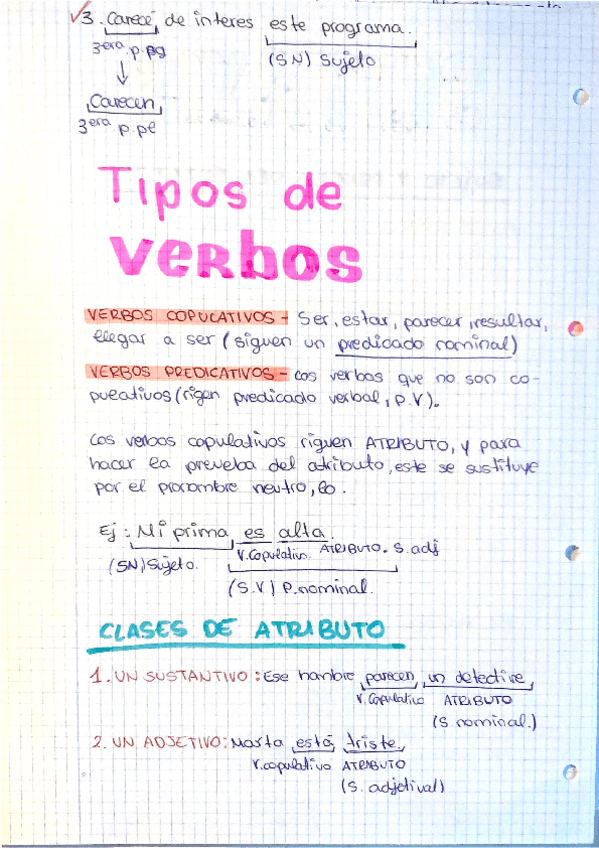 √3. Carece de interes este programa.
3era p.pg (SN) Sujeto
↓
Carecen
3era p.pl
Tipos de
verbos
VERBOS COPULATIVOS - Ser, estar, parecer, resultar,
llegar a ser (siguen un predicado nominal)
VERBOS PREDICATIVOS - Los verbos que no son co-
pulativos (rigen predicado verbal, P.V).
Los verbos copulativos riguen ATRIBUTO, y para
hacer la preueba del atributo, este se sustituye
por el pronombre neutro, lo.
Ej: Mi prima es alta.
(SN) Sujeto. V. Copulativo. ATRIBUTO. S. adj
(S.V) P. nominal.
CLASES DE ATRIBUTO
1. UN SUSTANTIVO: Ese hombre parecen un detective
V. Copulativo ATRIBUTO
(S nominal.)
2. UN ADJETIVO: Marta está triste
V. copulativo ATRIBUTO
(S. adjetival)